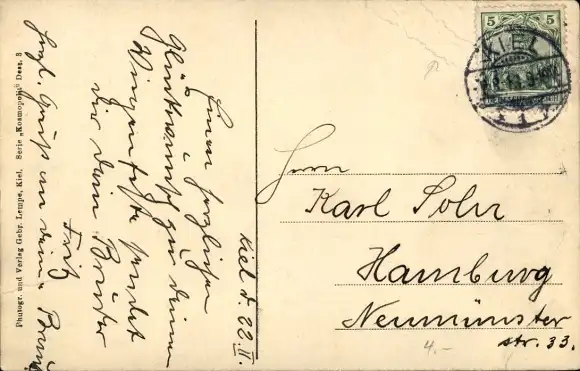 Kiel d. 22. II.
Einen herzlichen
Glückwunsch zu deinem
Wiegenfeste sendet
dir dein Bruder
Fritz
Herzl. Gruß an deine
Herrn
Karl Sohr
Hamburg
Neumünster
str. 33.
4.-
5
KIEL
Photogr. und Verlag Gebr. Lempe, Kiel. Serie „Kosmopolit" Dess. 3